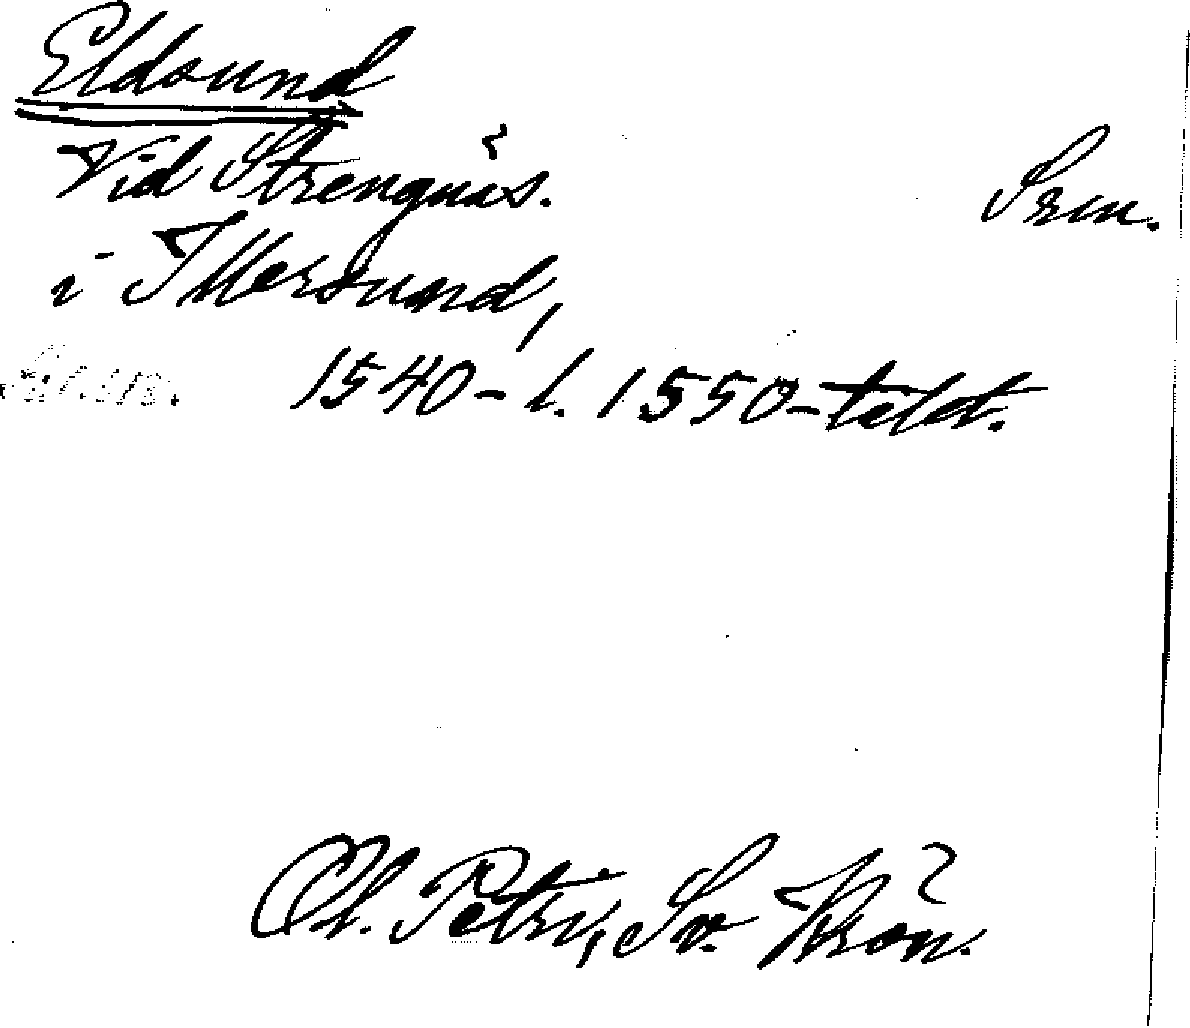 Eldsund
Vid Strengnäs.
Srm.
i Illersund,
1540- l. 1550-talet.
Ol. Petri, Sv. Krön.